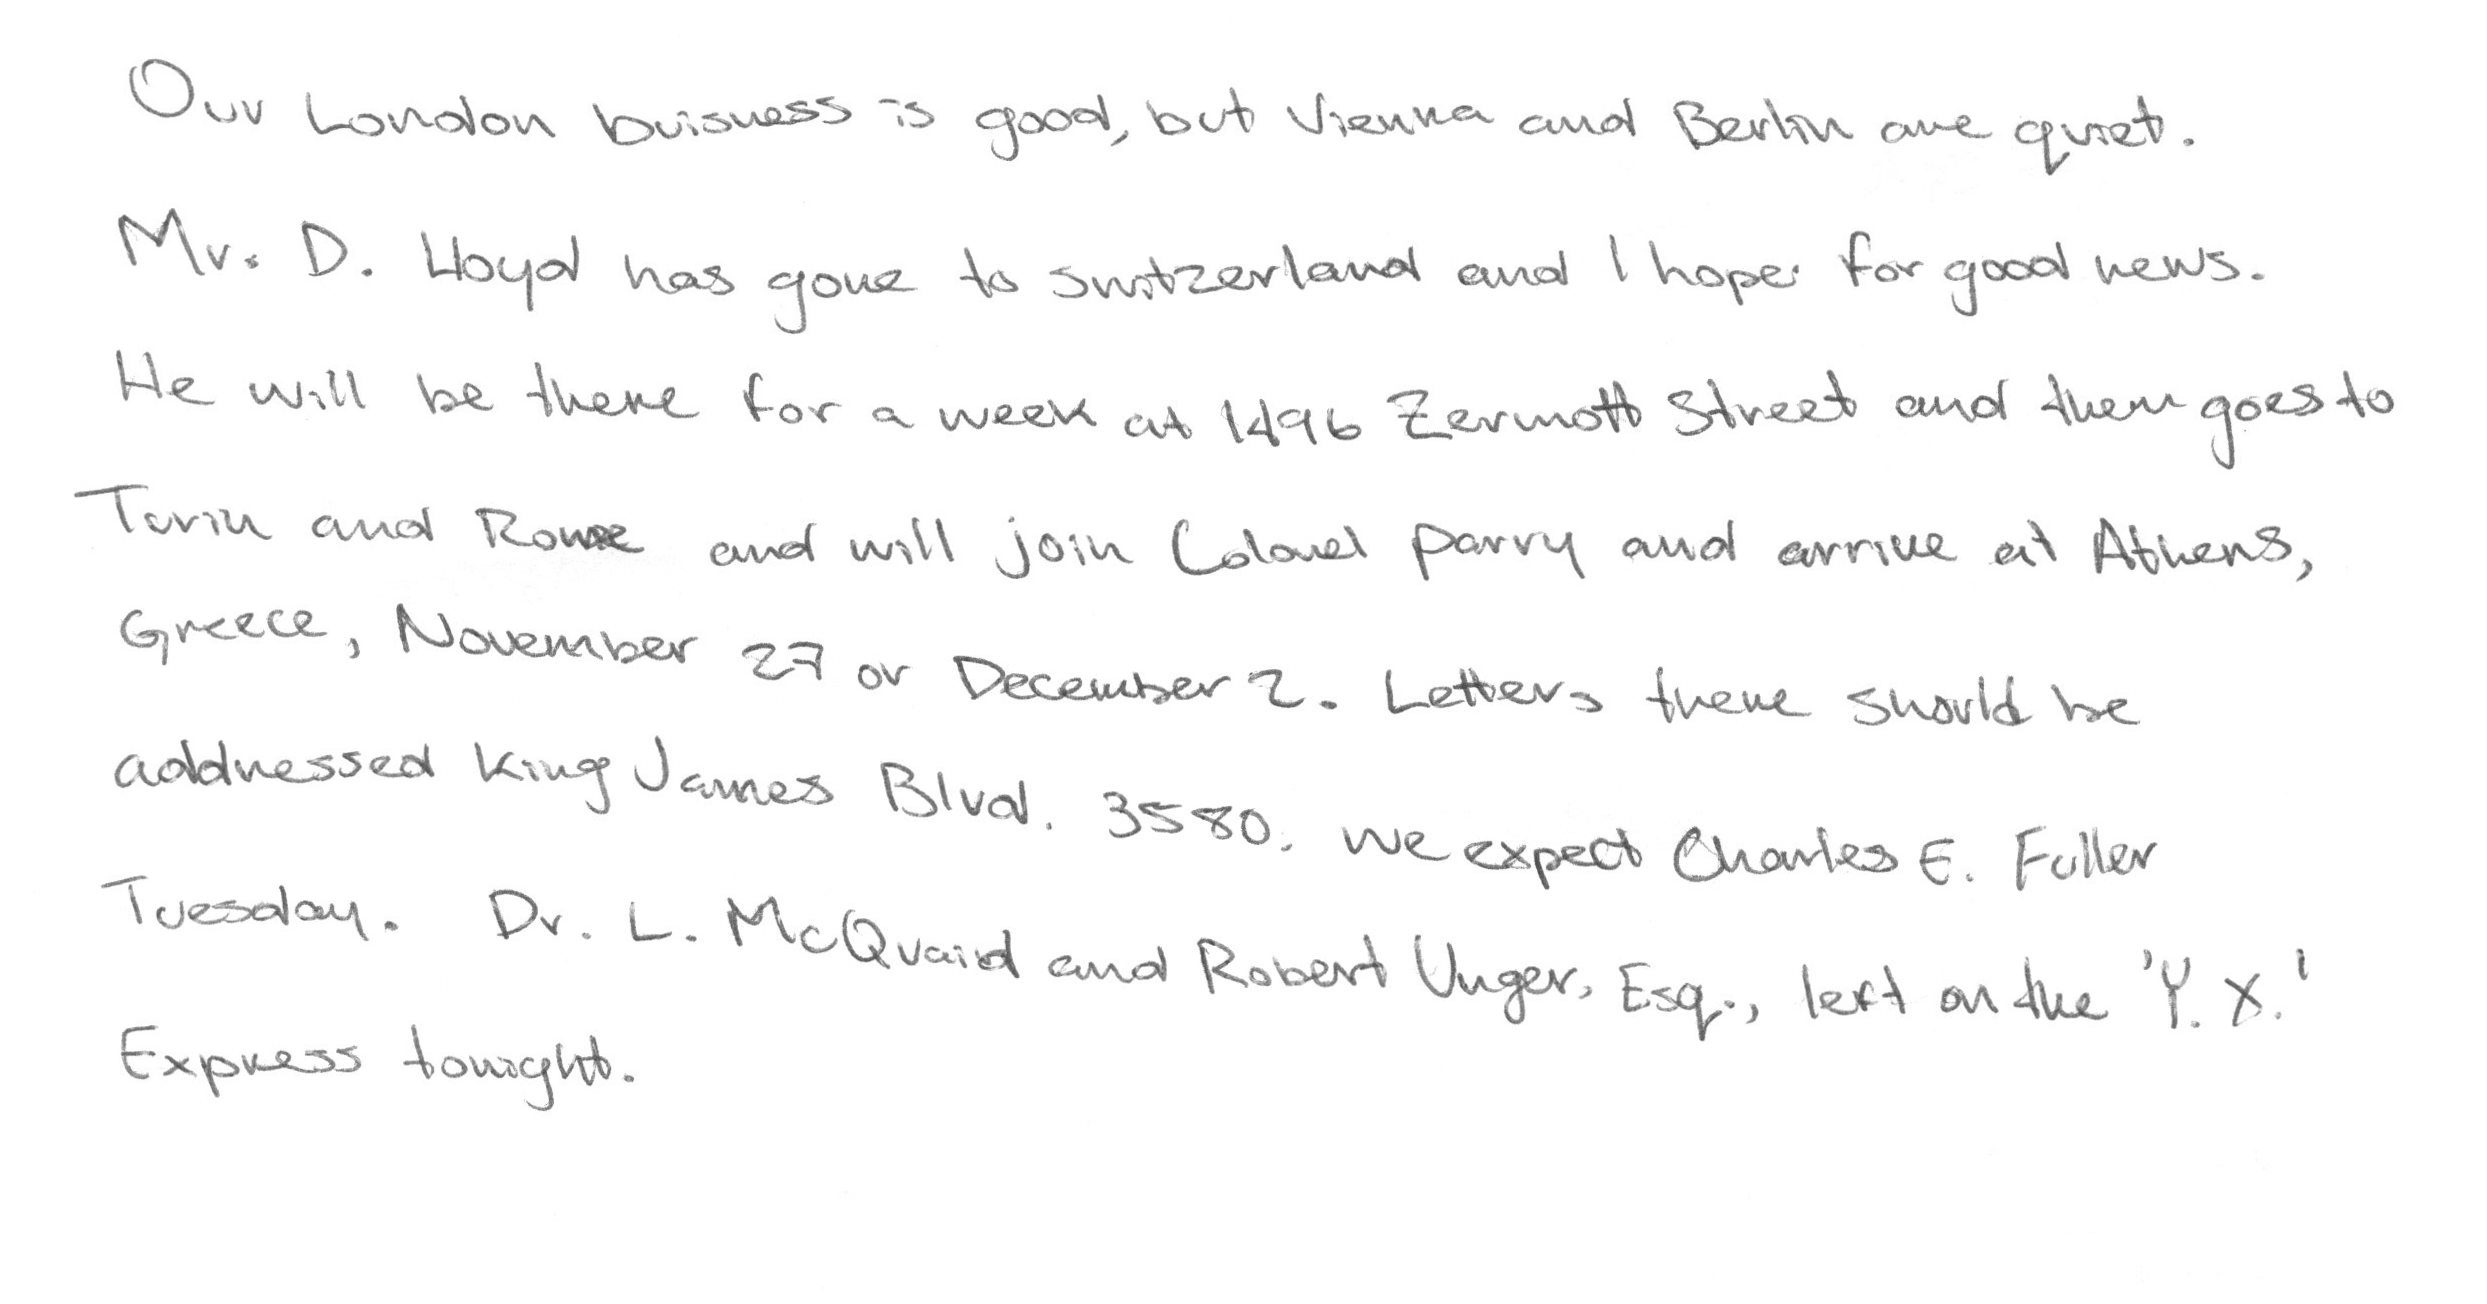 Our London buisness is good, but Vienna and Berlin are quiet.
Mr. D. Lloyd has gone to Switzerland and I hope for good news.
He will be there for a week at 1496 Zermott Street and then goes to
Turin and Rome and will join Colonel Parry and arrive at Athens,
Greece, November 27 or December 2. Letters there should be
addressed King James Blvd. 3580. We expect Charles E. Fuller
Tuesday. Dr. L. McQuaid and Robert Unger, Esq., left on the 'Y.X.'
Express tonight.